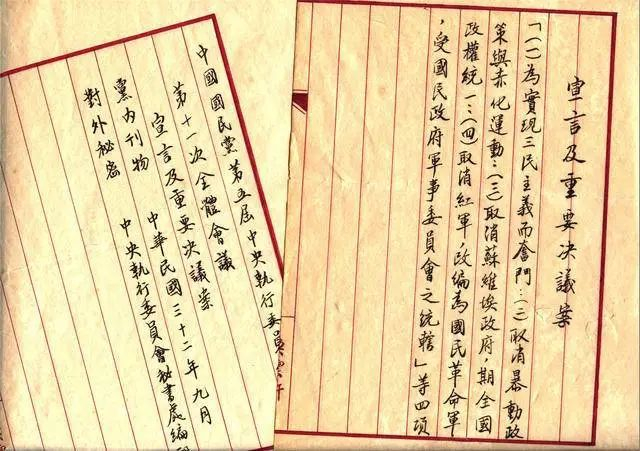 宣言及重要决議案
「(一)為實現三民主義而奮鬥:(二)取消暴動政
策與赤化運動:(三)取消蘇維埃政府,期全國
政權統一:(四)取消紅軍,改編為國民革命軍
,受國民政府軍事委員會之統轄」等四項
中國國民黨第五屆中央執行委員
第十一次全體會議
宣言及重要决議案
黨內刊物 中華民國三十二年九月
對外秘密 中央執行委員會秘書處編